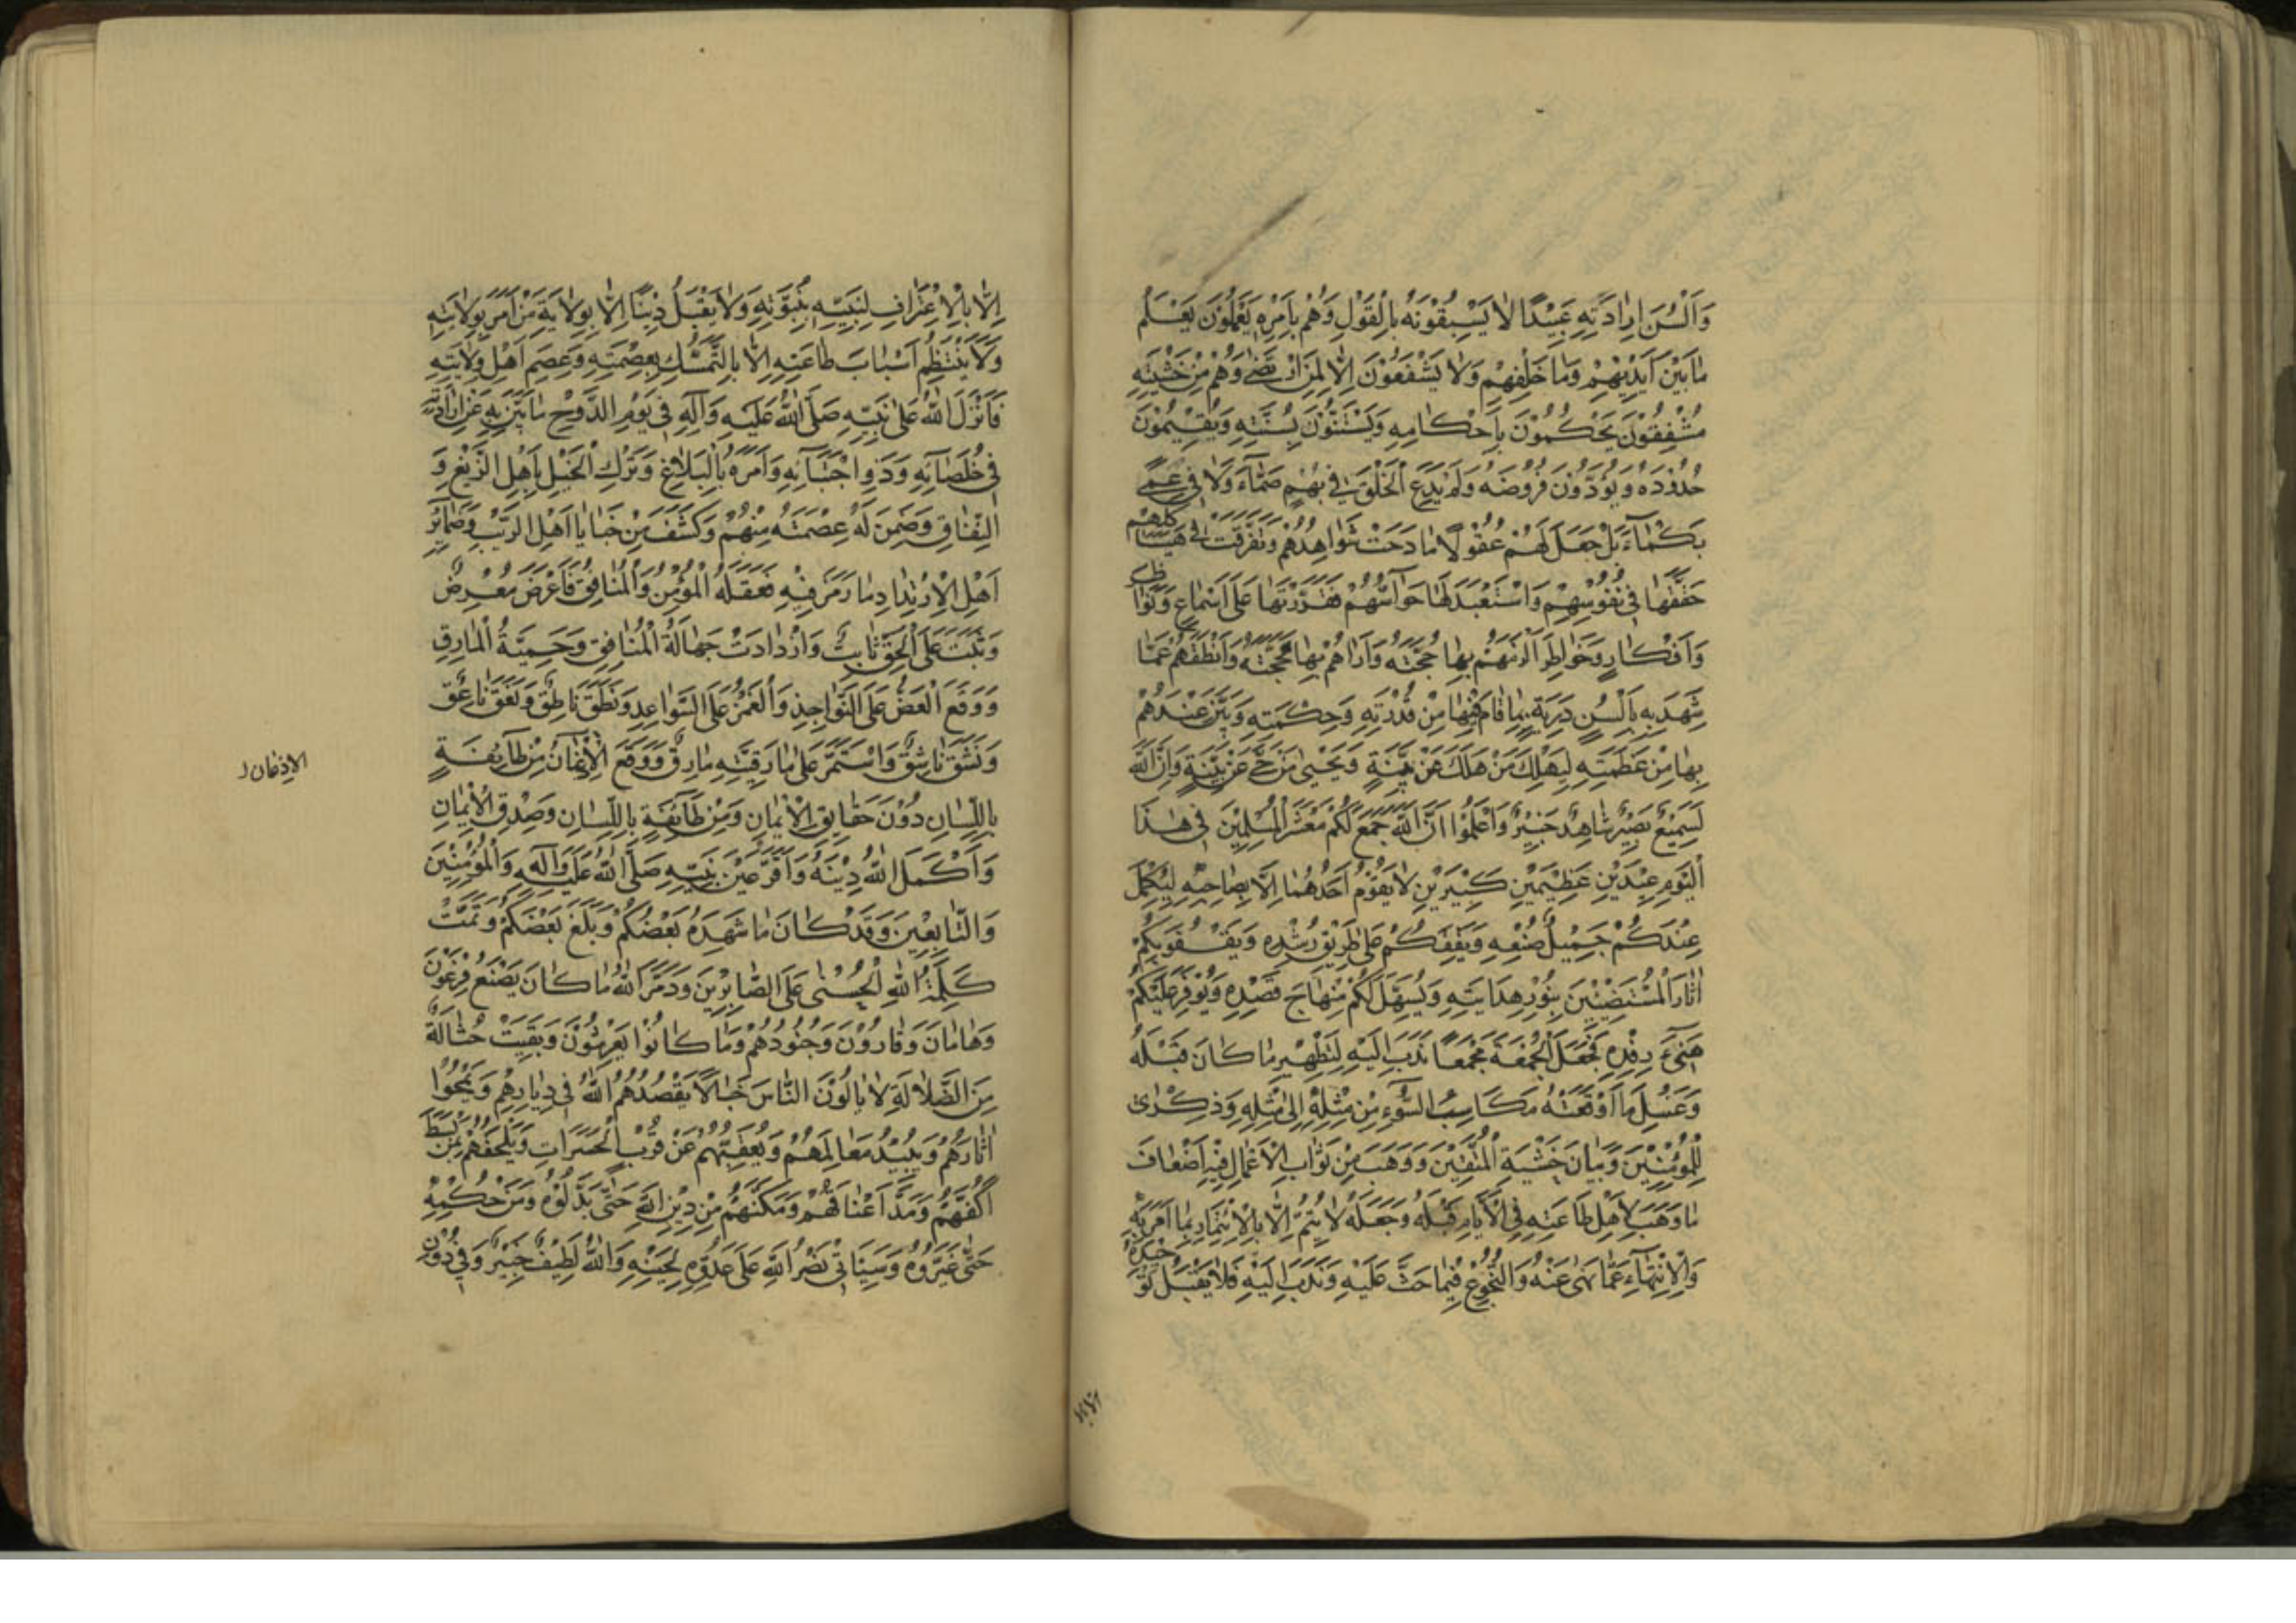 وَاَلْسُنَ اِرٰادَتِهِ عَبِيْدًا لاٰ يَسْبِقُوْنَهُ بِالْقَوْلِ وَهُمْ بِاَمْرِهِ يَعْمَلُوْنَ يَعْلَمُ
مٰا بَيْنَ اَيْدِيْهِمْ وَمٰا خَلْفَهُمْ وَلاٰ يَشْفَعُوْنَ اِلاّٰ لِمَنِ ارْتَضٰى وَهُمْ مِنْ خَشْيَتِهِ
مُشْفِقُوْنَ يَحْكُمُوْنَ بِاَحْكٰامِهِ وَيَسْتَنُّوْنَ بِسُنَّتِهِ وَيُقِيْمُوْنَ
حُدُوْدَهُ وَيُؤَدُّوْنَ فُرُوْضَهُ وَلَمْ يَدَعِ الْخَلْقَ فِي بُهَمٍ صَمّٰاءَ وَلاٰ فِي عَمًى
بَكْمٰاءَ بَلْ جَعَلَ لَهُمْ عُقُوْلاً مٰازَجَتْ شَوٰاهِدَهُمْ وَتَفَرَّقَتْ فِي هَيٰاكِلِهِمْ
حَقَّقَهٰا فِي نُفُوْسِهِمْ وَاسْتَعْبَدَ لَهٰا حَوٰاسَّهُمْ فَقَرَّرَتْهٰا عَلَى اَسْمٰاعٍ وَنَوٰاظِرَ
وَاَفْكٰارٍ وَخَوٰاطِرَ اَلْزَمَهُمْ بِهٰا حُجَّتَهُ وَاَرٰاهُمْ بِهٰا مَحَجَّتَهُ وَاَنْطَقَهُمْ عَمّٰا
شَهِدَ بِهِ بِاَلْسُنٍ ذَرِبَةٍ بِمٰا قٰامَ فِيْهٰا مِنْ قُدْرَتِهِ وَحِكْمَتِهِ وَبَيَّنَ عِنْدَهُمْ
بِهٰا مِنْ عَظَمَتِهِ لِيَهْلِكَ مَنْ هَلَكَ عَنْ بَيِّنَةٍ وَيَحْيٰى مَنْ حَيَّ عَنْ بَيِّنَةٍ وَاِنَّ اللّٰهَ
لَسَمِيْعٌ بَصِيْرٌ شٰاهِدٌ خَبِيْرٌ وَاعْلَمُوْا اَنَّ اللّٰهَ جَمَعَ لَكُمْ مَعْشَرَ الْمُسْلِمِيْنَ فِي هٰذَا
الْيَوْمِ عِيْدَيْنِ عَظِيْمَيْنِ كَبِيْرَيْنِ لاٰ يَقُوْمُ اَحَدُهُمٰا اِلاّٰ بِصٰاحِبِهِ لِيُكْمِلَ
عِنْدَكُمْ جَمِيْلَ صُنْعِهِ وَيَقِفَكُمْ عَلىٰ طَرِيْقِ رُشْدِهِ وَيَقْفُوَ بِكُمْ
اٰثٰارَ الْمُسْتَضِيْئِيْنَ بِنُوْرِ هِدٰايَتِهِ وَيُسَهِّلَ لَكُمْ مِنْهٰاجَ قَصْدِهِ وَيُوَفِّرَ عَلَيْكُمْ
هَنِيْءَ رِفْدِهِ فَجَعَلَ الْجُمُعَةَ مَجْمَعًا نَدَبَ اِلَيْهِ لِتَطْهِيْرِ مٰا كٰانَ قَبْلَهُ
وَغَسْلِ مٰا اَوْقَعَتْهُ مَكٰاسِبُ السُّوْءِ مِنْ مِثْلِهِ اِلىٰ مِثْلِهِ وَذِكْرٰى
لِلْمُؤْمِنِيْنَ وَبَيٰانَ خَشْيَةِ الْمُتَّقِيْنَ وَوَهَبَ مِنْ ثَوٰابِ الْاَعْمٰالِ فِيْهِ اَضْعٰافَ
مٰا وَهَبَ لِاَهْلِ طٰاعَتِهِ فِي الْاَيّٰامِ قَبْلَهُ وَجَعَلَهُ لاٰ يَتِمُّ اِلاّٰ بِالْاِيْتِمٰارِ بِمٰا اَمَرَ بِهِ
وَالْاِنْتِهٰاءِ عَمّٰا نَهٰى عَنْهُ وَالْبُخُوْعِ فِيْمٰا حَثَّ عَلَيْهِ وَنَدَبَ اِلَيْهِ فَلاٰ يَقْبَلُ تَوْحِيْدَهُ
اِلاّٰ بالا
اِلاّٰ بِالْاِعْتِرٰافِ لِنَبِيِّهِ بِنُبُوَّتِهِ وَلاٰ يَقْبَلُ دِيْنًا اِلاّٰ بِوِلاٰيَةِ مَنْ اَمَرَ بِوِلاٰيَتِهِ
وَلاٰ يَنْتَظِمُ اَسْبٰابَ طٰاعَتِهِ اِلاّٰ بِالتَّمَسُّكِ بِعِصْمَتِهِ وَعِصَمِ اَهْلِ وِلاٰيَتِهِ
فَاَنْزَلَ اللّٰهُ عَلىٰ نَبِيِّهِ صَلَّى اللّٰهُ عَلَيْهِ وَآلِهِ فِي يَوْمِ الدَّوْحِ مٰا بَيَّنَ بِهِ عَنْ اِرٰادَتِهِ
فِي خُلَصٰائِهِ وَذَوِي اجْتِبٰائِهِ وَاَمَرَهُ بِالْبَلاٰغِ وَتَرْكِ الْحَفْلِ بِاَهْلِ الزَّيْغِ وَ
النِّفٰاقِ وَضَمِنَ لَهُ عِصْمَتَهُ مِنْهُمْ وَكَشَفَ مِنْ خَبٰايٰا اَهْلِ الرَّيْبِ وَضَمٰائِرِ
اَهْلِ الْاِرْتِدٰادِ مٰا رَمَزَ فِيْهِ فَعَقَلَهُ الْمُؤْمِنُ وَالْمُنٰافِقُ فَاَعْرَضَ مُعْرِضٌ
وَثَبَتَ عَلَى الْحَقِّ ثٰابِتٌ وَازْدٰادَتْ جَهٰالَةُ الْمُنٰافِقِ وَحَمِيَّةُ الْمٰارِقِ
وَوَقَعَ الْعَضُّ عَلَى النَّوٰاجِذِ وَالْغَمْزُ عَلَى السَّوٰاعِدِ وَنَطَقَ نٰاطِقٌ وَنَعَقَ نٰاعِقٌ
وَنَشَقَ نٰاشِقٌ وَاسْتَمَرَّ عَلىٰ مٰارِقِيَّتِهِ مٰارِقٌ وَوَقَعَ الْاِذْعٰانُ مِنْ طٰائِفَةٍ
الاِذعٰان
بِاللِّسٰانِ دُوْنَ حَقٰايِقِ الْاِيْمٰانِ وَمِنْ طٰائِفَةٍ بِاللِّسٰانِ وَصِدْقِ الْاِيْمٰانِ
وَاَكْمَلَ اللّٰهُ دِيْنَهُ وَاَقَرَّ عَيْنَ نَبِيِّهِ صَلَّى اللّٰهُ عَلَيْهِ وَآلِهِ وَالْمُؤْمِنِيْنَ
وَالتّٰابِعِيْنَ وَقَدْ كٰانَ مٰا شَهِدَهُ بَعْضُكُمْ وَبَلَغَ بَعْضَكُمْ وَتَمَّتْ
كَلِمَةُ اللّٰهِ الْحُسْنٰى عَلَى الصّٰابِرِيْنَ وَدَمَّرَ اللّٰهُ مٰا كٰانَ يَصْنَعُ فِرْعَوْنَ
وَهٰامٰانَ وَقٰارُوْنَ وَجُنُوْدُهُمْ وَمٰا كٰانُوْا يَعْرِشُوْنَ وَبَقِيَتْ حُثٰالَةٌ
مِنَ الضَّلاٰلَةِ لاٰ يٰالُوْنَ النّٰاسَ خَبٰالاً يَقْصُدُهُمُ اللّٰهُ فِي دِيٰارِهِمْ وَيَمْحُوْا
اٰثٰارَهُمْ وَيُبِيْدُ مَعٰالِمَهُمْ وَيُعَقِّبُهُمْ عَنْ قُرْبٍ الْحَسَرٰاتِ وَيُلْحِقُهُمْ بِمَنْ بَسَطَ
اَكُفَّهُمْ وَمَدَّ اَعْنٰاقَهُمْ وَمَكَّنَهُمْ مِنْ دِيْنِ اللّٰهِ حَتّٰى بَدَّلُوْهُ وَمِنْ حُكْمِهِ
حَتّٰى غَيَّرُوْهُ وَسَيَأْتِي نَصْرُ اللّٰهِ عَلىٰ عَدُوِّهِ لِحِيْنِهِ وَاللّٰهُ لَطِيْفٌ خَبِيْرٌ وَفِي دُوْنِ